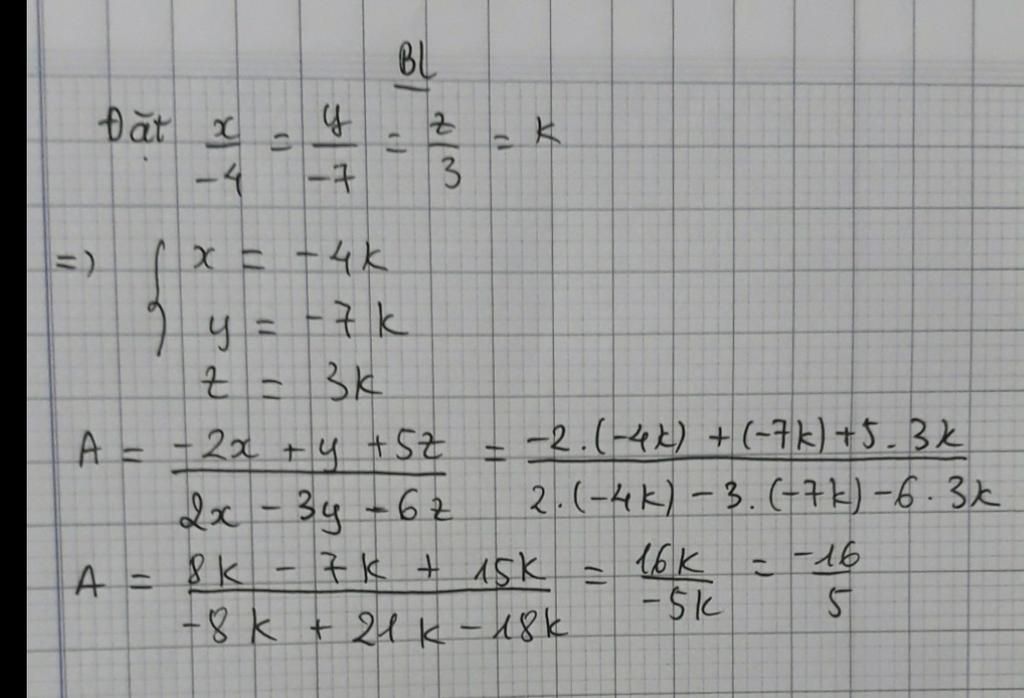 BL
Đặt x/-4 = y/-7 = z/3 = k
=> { x = -4k
y = -7k
z = 3k
A = (-2x + y + 5z)/(2x - 3y - 6z) = (-2.(-4k) + (-7k) + 5.3k)/(2.(-4k) - 3.(-7k) - 6.3k)
A = (8k - 7k + 15k)/(-8k + 21k - 18k) = 16k/-5k = -16/5